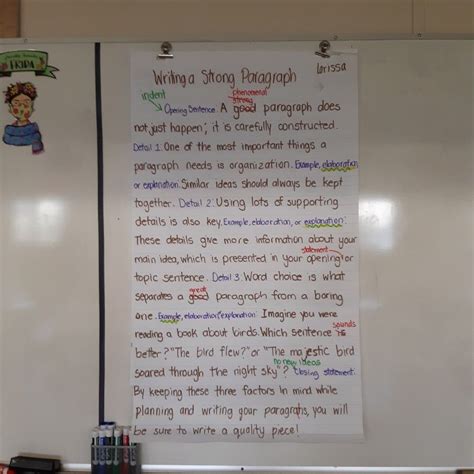 Writing a Strong Paragraph
Lorissa
FRIDA
phenomenal
indent
strong
Opening Sentence. A good paragraph does
not just happen; it is carefully constructed.
Detail 1. One of the most important things a
paragraph needs is organization. Example, elaboration,
or explanation. Similar ideas should always be kept
together. Detail 2. Using lots of supporting
details is also key. Example, elaboration, or explanation.
These details give more information about your
main idea, which is presented in your opening or
statement
topic sentence. Detail 3. Word choice is what
great
separates a good paragraph from a boring
one. Example, elaboration, explanation. Imagine you were
reading a book about birds. Which sentence is
sounds
better? "The bird flew?" or "The majestic bird
no new ideas
soared through the night sky"? Closing statement.
By keeping these three factors in mind while
planning and writing your paragraphs, you will
be sure to write a quality piece!